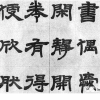 書偶愛
閑靜開
卷有得
便欣然